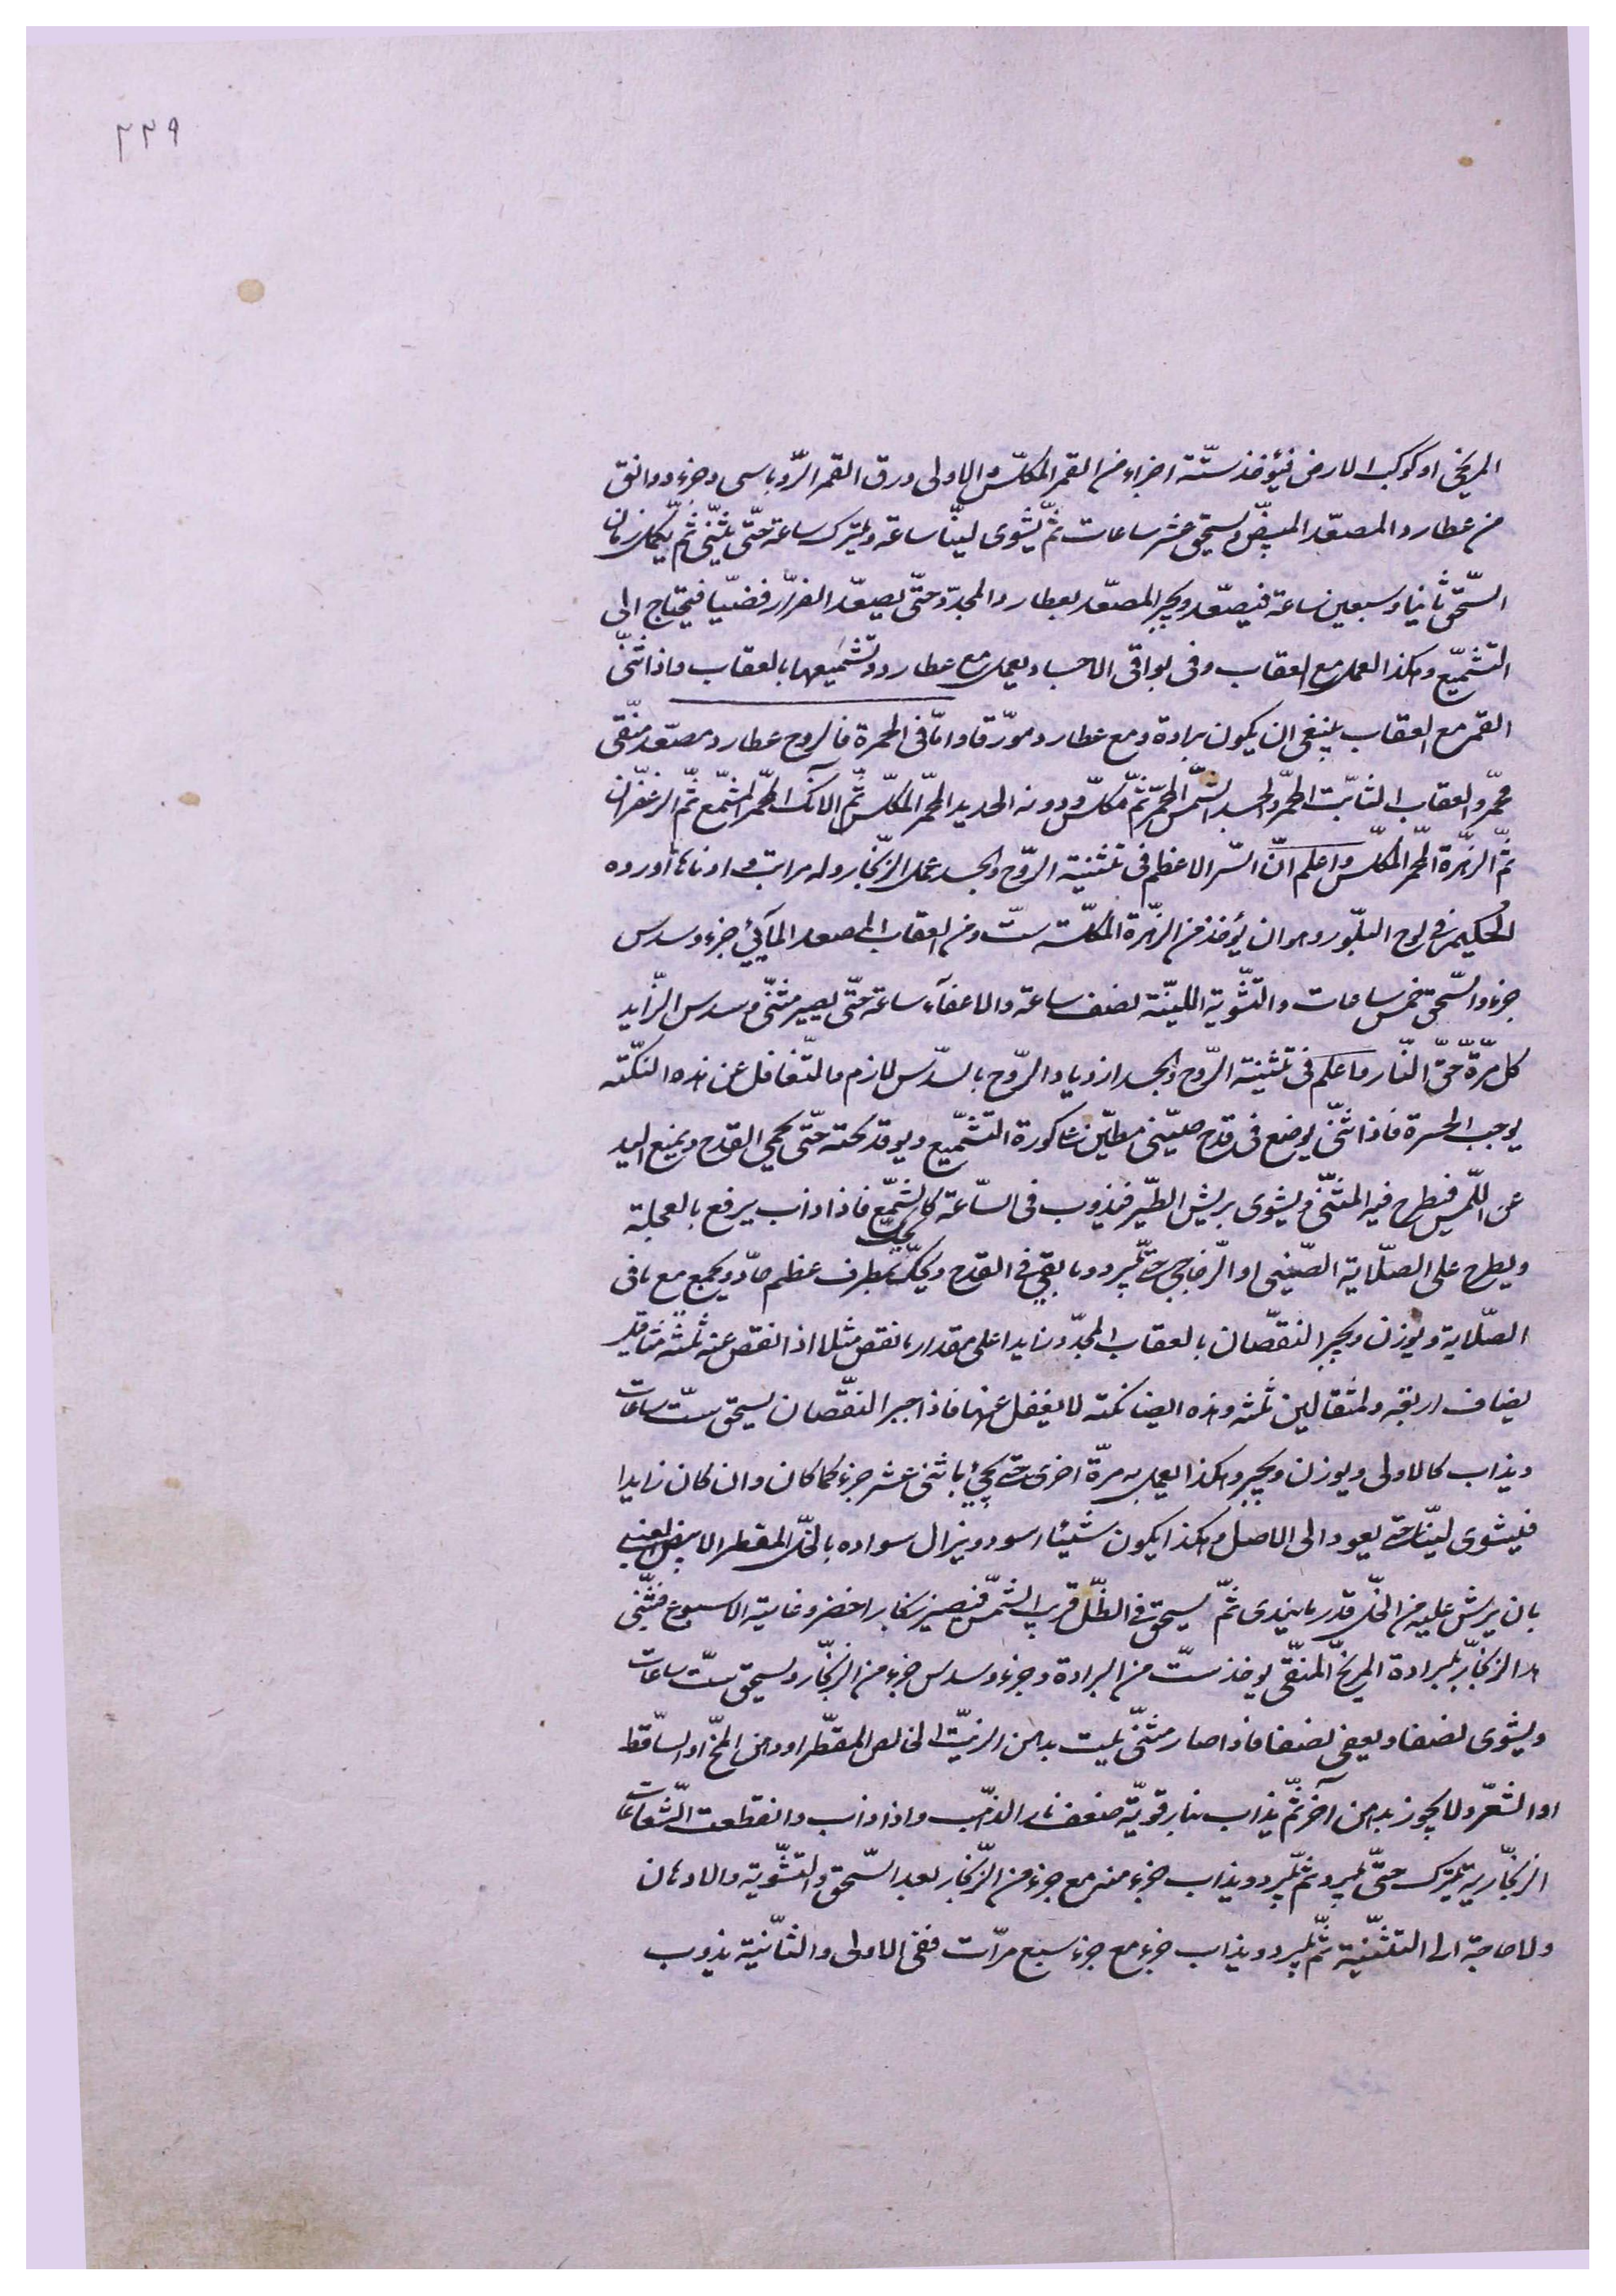 ٢٣٩
المريخ او كوكب الارض فيؤخذ ستّة اجزاء من القمر المكلّس الاولى ورق القمر الرّوباسى وجزء ودوانق
من عطارد المصعّد المبيّض ويسحق عشر ساعات ثمّ يشوى ليّنا ساعة ويترك ساعة حتّى يثنّى ثمّ يكمل زمان
السّحق ثانيا وسبعين ساعة فيصعّد ويجبر المصعّد بعطارد المجدّد حتّى يصعّد الفرّار فضيّا فيحتاج الى
التشميع وهكذا العمل مع العقاب وفى بواقى الاجساد يعمل مع عطارد وتشميعها بالعقاب واذا تثنّى
القمر مع العقاب ينبغى ان يكون برادة ومع عطارد مورّقا وامّا فى الحمرة فالروح عطارد مصعّد منقّى
محمّر والعقاب الثابت المحمّر والجسد الشمس المحمّر ثمّ مكلّس ودونه الحديد المحمّر المكلّس ثمّ الآنك المحمّر المشمّع ثمّ الزعفران
ثمّ الزهرة المحمّر المكلّس واعلم انّ السّر الاعظم فى تثنية الرّوح والجسد عمل الزّنجار وله مراتب وادناها ما اورده
الحكيم فى لوح البلّور وهو ان يؤخذ من الزّهرة المكلّسة ستّ ومن العقاب المصعد المآئي جزء وسدس
جزء والسّحق خمس ساعات والتّشوية الليّنة نصف ساعة والاعفآء ساعة حتّى يصير مثنّى وسدس الزّايد
كل مرّة حقّ النّار واعلم فى تثنية الرّوح والجسد ازدياد الرّوح بالسّدس لازم والتّغافل عن هذه النّكتة
يوجب الحسرة فاذا تثنّى يوضع فى قدح صينى مطيّن شاكورة التّشميع ويوقد تحته حتّى يحمي القدح ويمنع اليد
عن اللّمس فيطرح فيه المثنّى ويشوى بريش الطّير فيذوب فى السّاعة كالشّمع فاذا ذاب يرفع بالعجلة
ويطرح على الصّلاية الصّينى او الزّجاجى حتى يبرد وما بقى فى القدح ويحكّ بطرف عظم حادّ ويجمع مع ما فى
الصّلاية ويوزن ويجبر النقصان بالعقاب المجدّد زايدا على مقدار ما نقص مثلا اذا نقص عنه ثلثة مثاقيل
يضاف اربعة ولمثقالين ثلثة وهذه ايضا نكتة لا يغفل عنها فاذا جبر النّقصان يسحق ستّ ساعات
ويذاب كالاولى ويوزن ويجبر وهكذا يعمل به مرّة اخرى حتى يجئ باثنى عشر جزء كما كان وان كان زايدا
فليشوى ليّنا حتى يعود الى الاصل وهكذا يكون شيئا اسود ويزال سواده بالخلّ المقطر الابيض العنبى
بان يرش عليه من الخلّ قدر ما يندى ثمّ يسحق فى الظّل قريب الشّمس فيصير زنجار اخضر وغايته الاسبوع فيثنّى
هذا الزنجار ببرادة المريخ المنقّى يوخذ ستّ من البرادة وجزء وسدس جزء من الزنجار ويسحق ستّ ساعات
ويشوى نصفا ويعفى نصفا فاذا صار مثنّى يليت بدهن الزيت الخالص المقطّر او دهن المخّ او السّاقط
او الشّعر ولا يجوز بدهن آخر ثمّ يذاب بنار قويّة ضعف نار الذّهب واذا ذاب وانقطعت الشّعاعات
الزنجارية يترك حتّى يبرد ثمّ يبرد ويذاب جزء منه مع جزء من الزّنجار بعد السّحق والتّشوية والادهان
ولا حاجة الى التثنية ثمّ يبرد ويذاب جزء مع جزء سبع مرّات ففى الاولى والثّانية يذوب